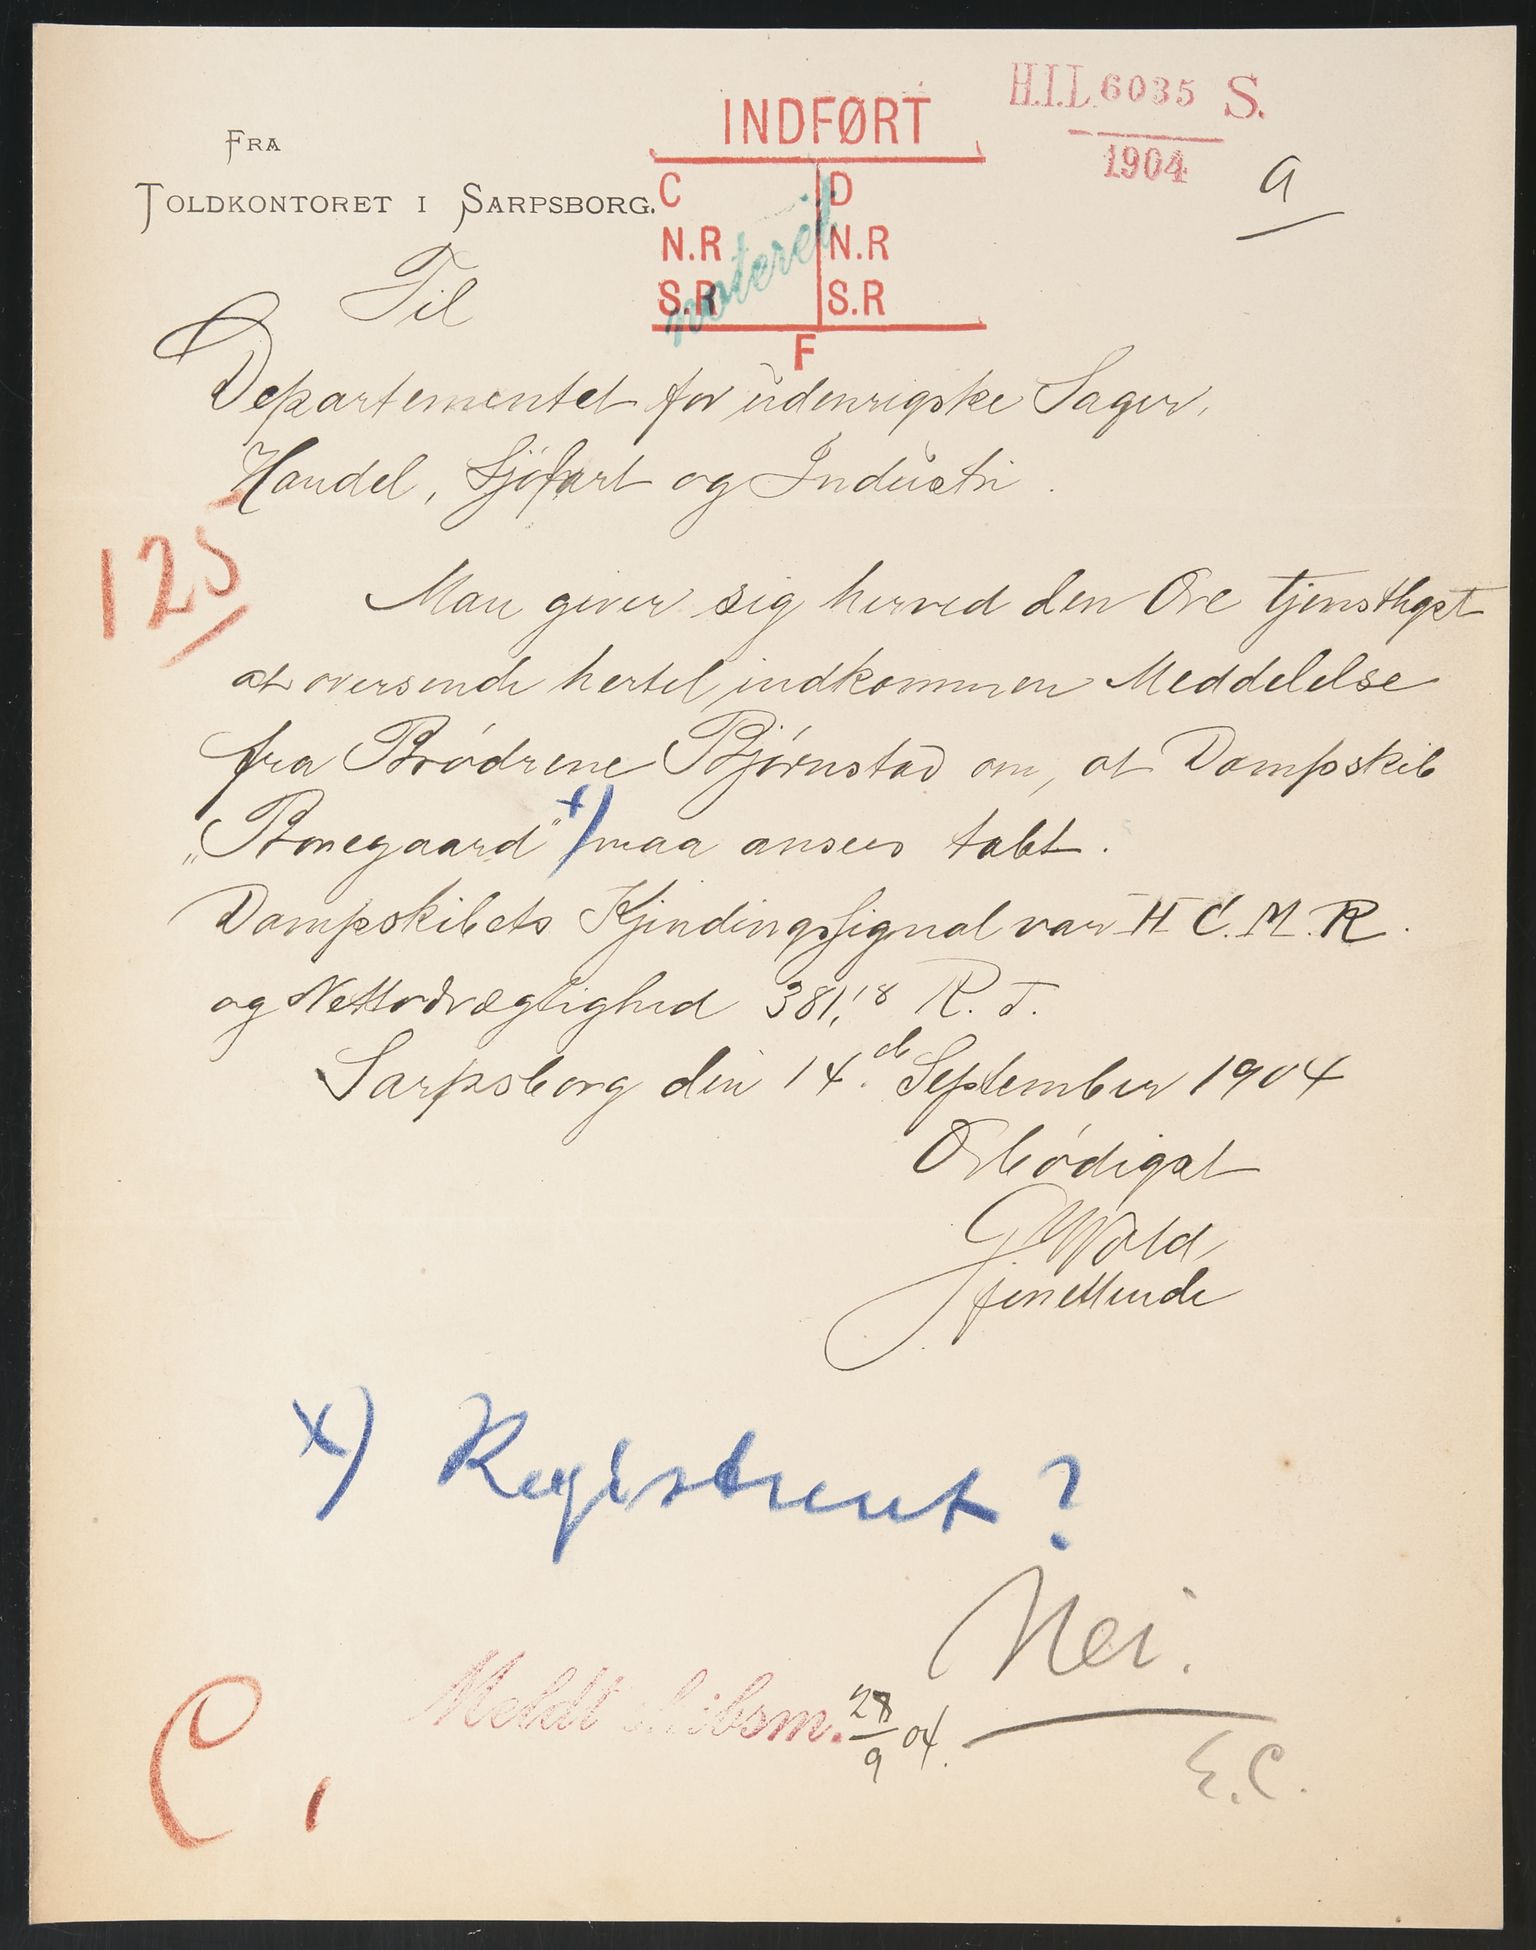 INDFØRT
H.I.L. 6035 S.
1904
a
FRA
TOLDKONTORET I SARPSBORG.
C D
N.R N.R
S.R S.R
F
noteret
Til
Departementet for udenrigske Sager,
Handel, Sjöfart og Industri.
125
Man giver sig herved den Ære tjenstligst
at oversende hertil indkommen Meddelelse
fra Brödrene Bjørnstad om, at Dampskib
„Borregaard" x) maa ansees tabt.
Dampskibets Kjendingssignal var H C. M. R.
og Nettodrægtighed 381,18 R. T.
Sarpsborg den 14.de September 1904
Ærbödigst
G Wold,
fgn
x) Registreret?
Nei.
Meldt skibsm. 28/9 04.
C.